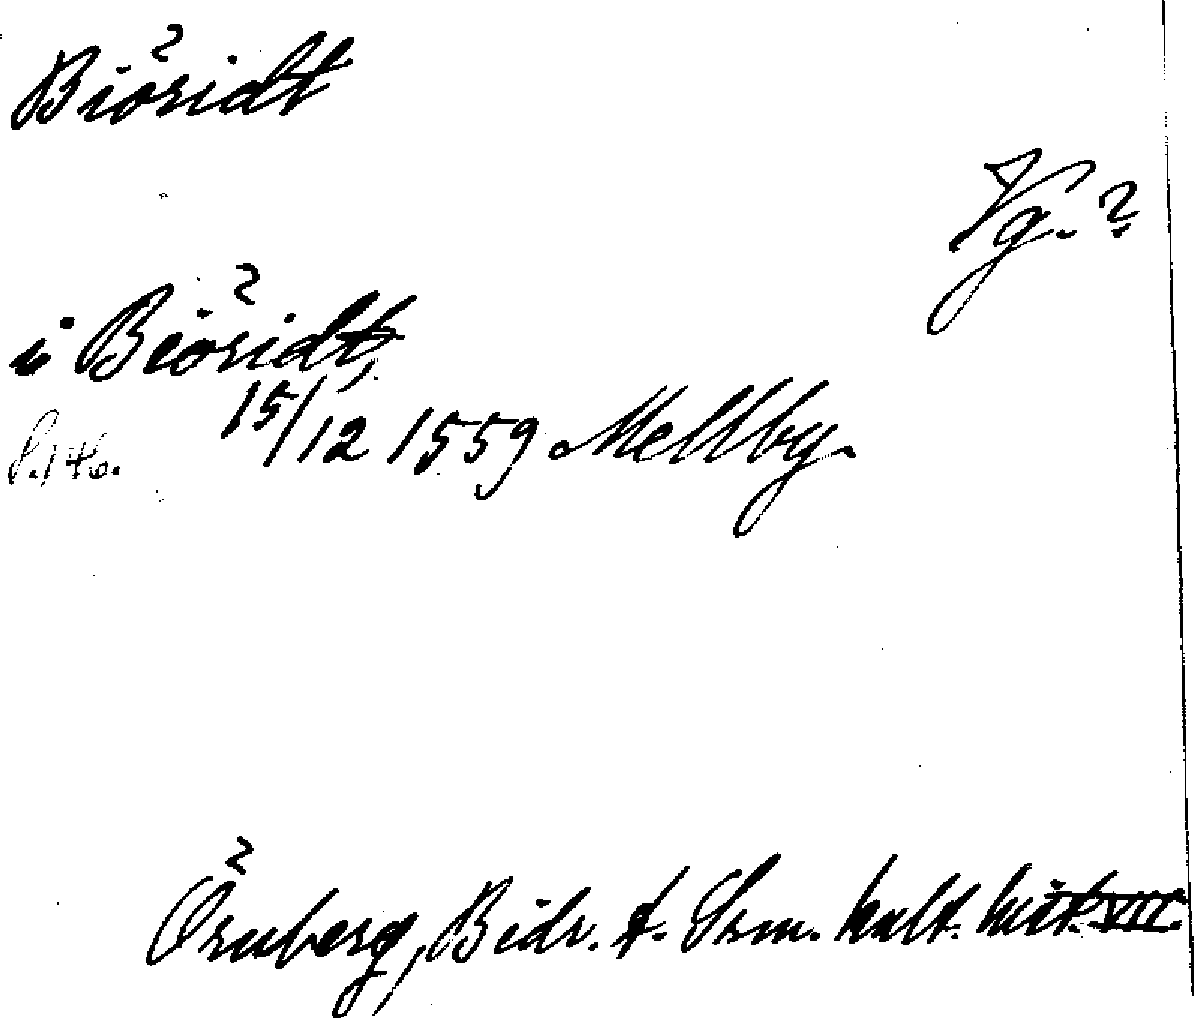 Biöridt
Vg. ?
i Biöridt,
s. 146. 15/12 1559 Mellby.
Örnberg, Bidr. t. Srm. kult. hist. VII.